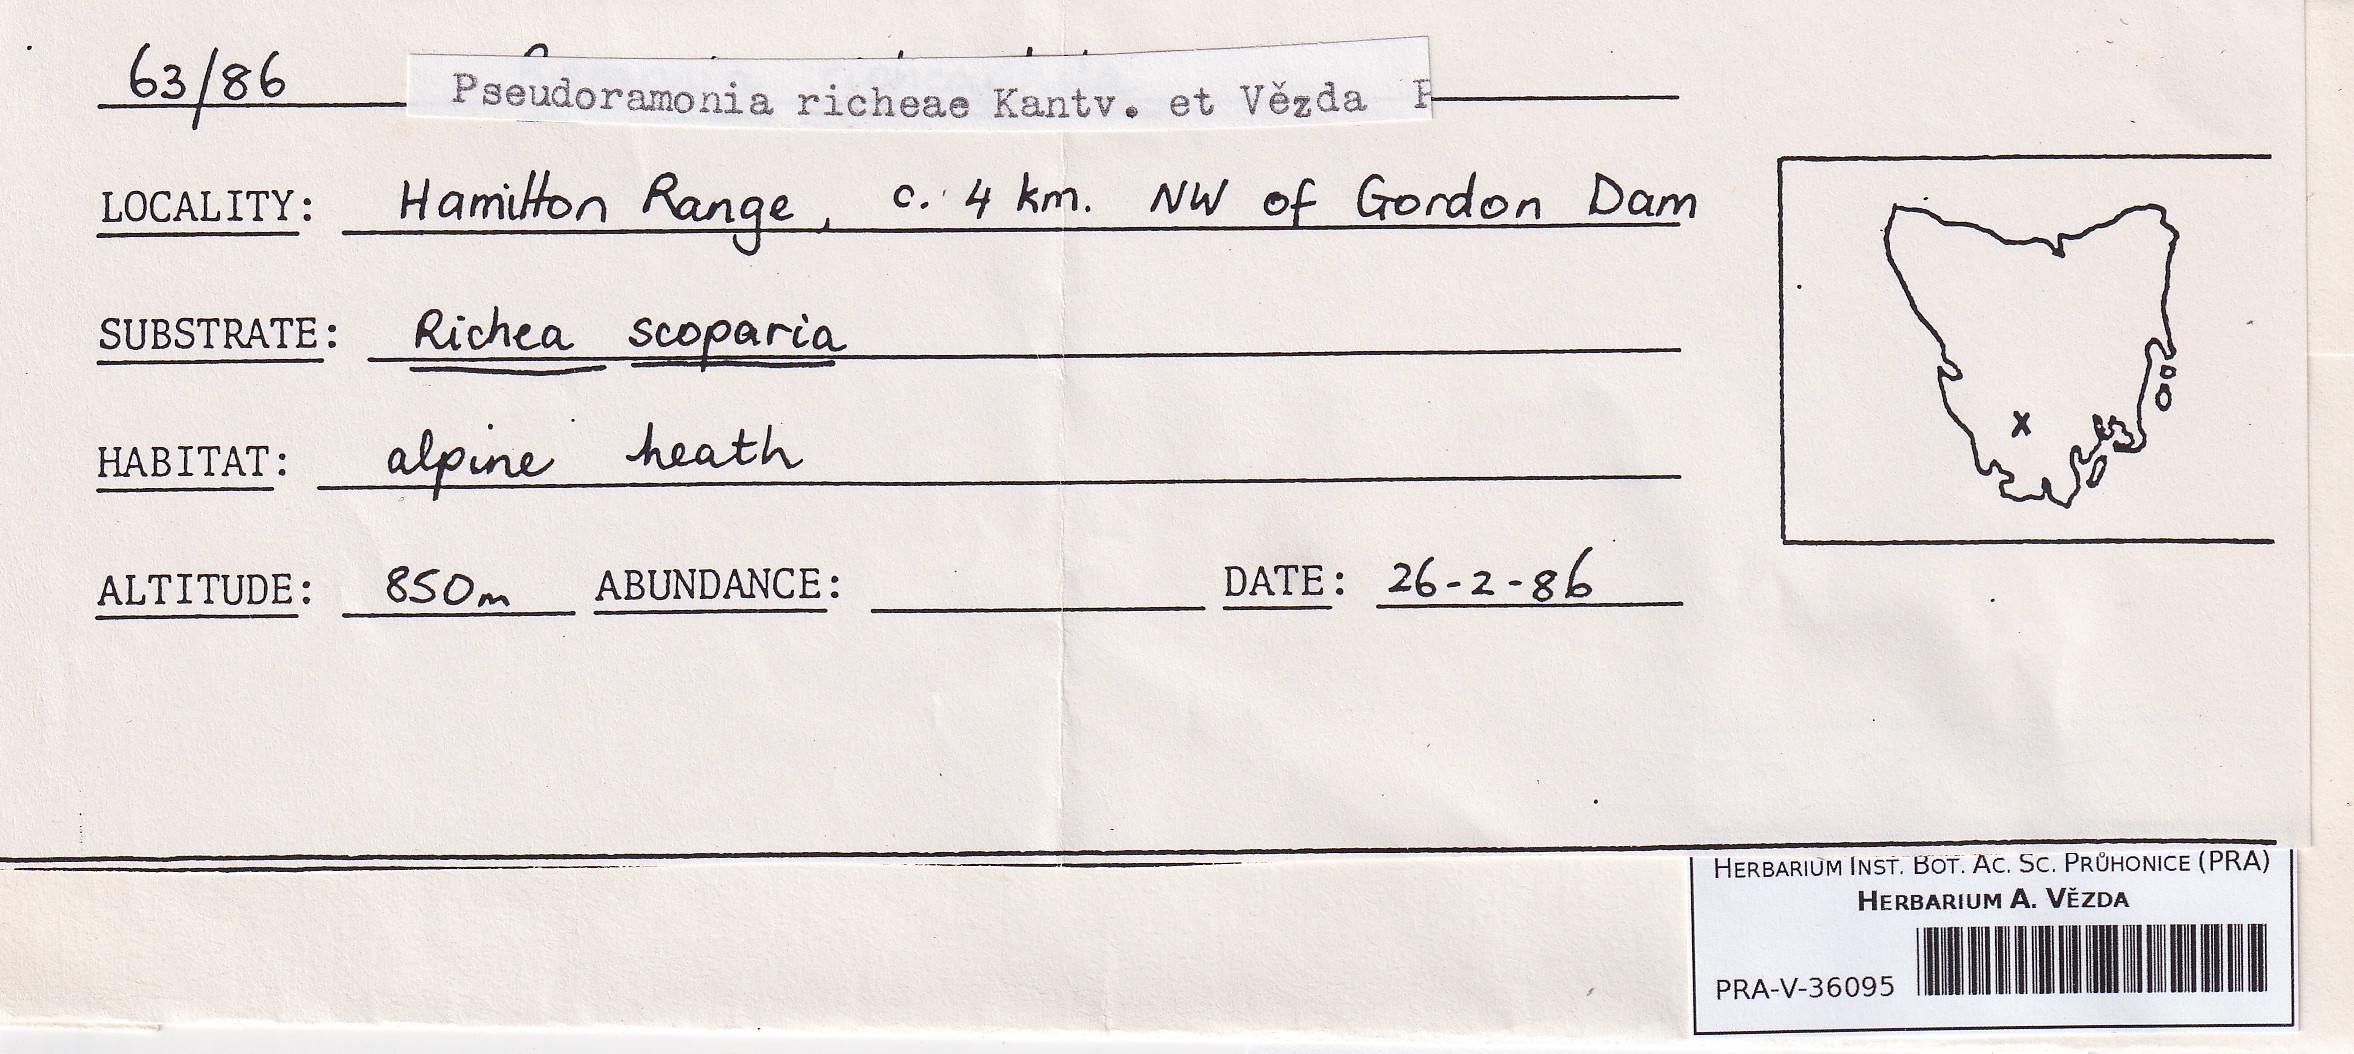 63/86 Pseudoramonia richeae Kantv. et Vězda
LOCALITY: Hamilton Range, c. 4 km. NW of Gordon Dam
SUBSTRATE: Richea scoparia
HABITAT: alpine heath
ALTITUDE: 850m ABUNDANCE: DATE: 26-2-86
x
HERBARIUM INST. BOT. AC. SC. PRŮHONICE (PRA)
HERBARIUM A. VĚZDA
PRA-V-36095